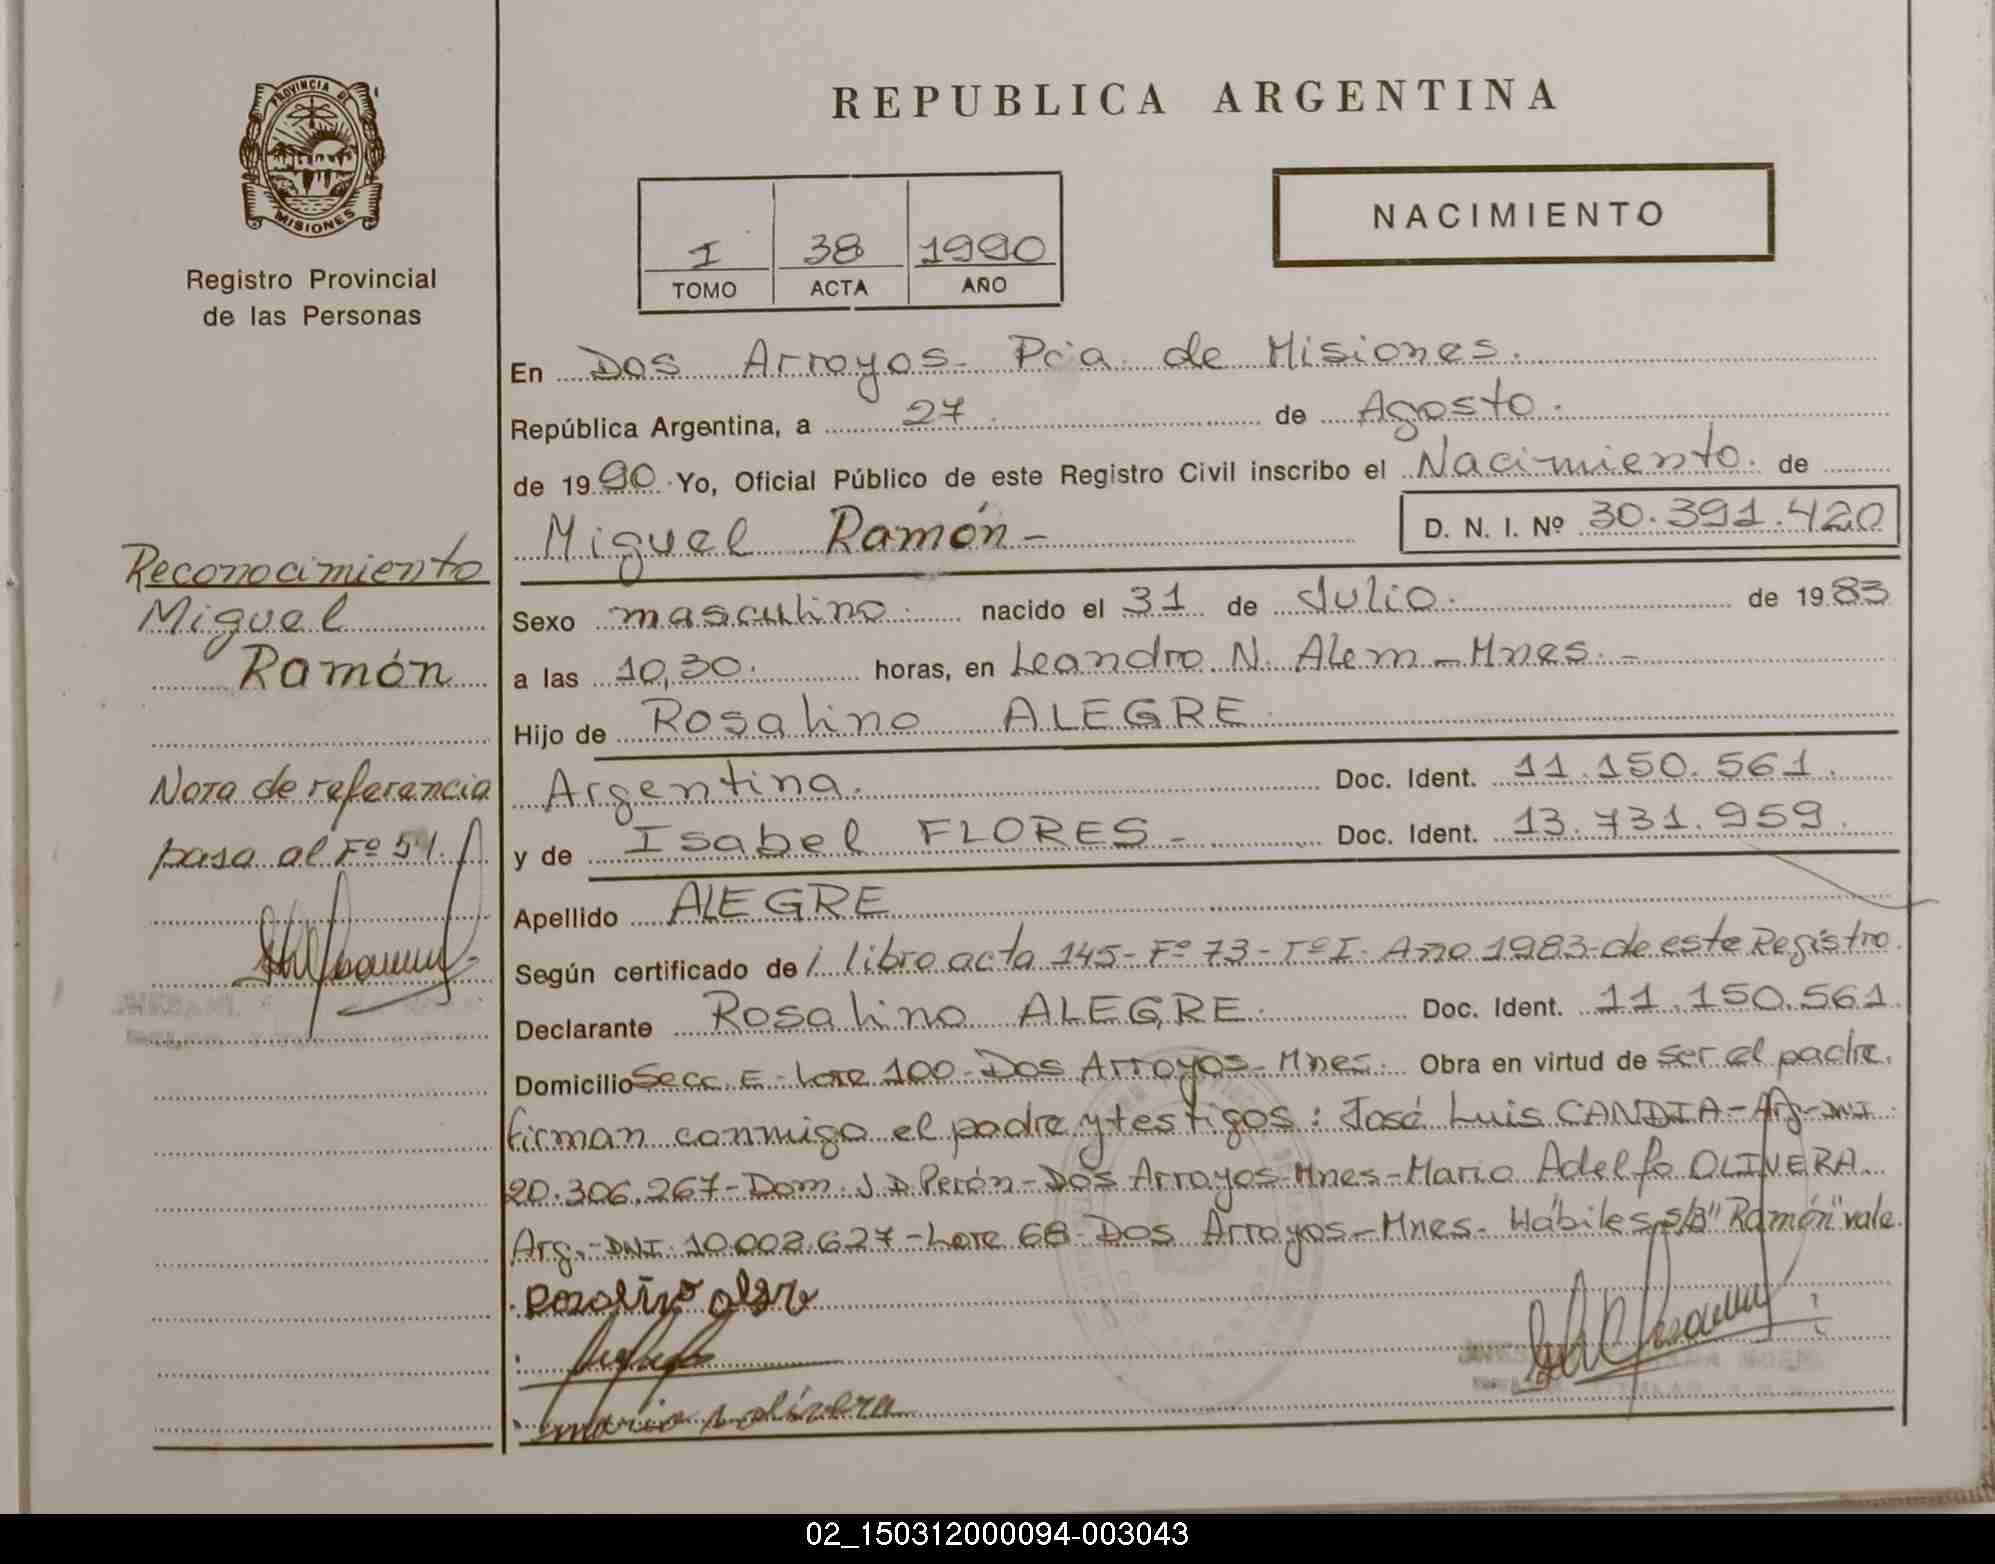 PROVINCIA DE
MISIONES
Registro Provincial
de las Personas
REPUBLICA ARGENTINA
NACIMIENTO
I 38 1990
TOMO ACTA AÑO
En Dos Arroyos - Pcia de Misiones.
República Argentina, a 27. de Agosto.
de 1990. Yo, Oficial Público de este Registro Civil inscribo el Nacimiento. de
Miguel Ramón -
D. N. I. Nº 30.391.420
Sexo masculino. nacido el 31 de Julio. de 1983
a las 10,30. horas, en Leandro N. Alem - Mnes. -
Hijo de Rosalino ALEGRE.
Argentina. Doc. Ident. 11.150.561.
y de Isabel FLORES - Doc. Ident. 13.731.959.
Apellido ALEGRE
Según certificado de / libro acta 145 - Fº 73 - Tº I - Año 1983 - de este Registro.
Declarante Rosalino ALEGRE. Doc. Ident. 11.150.561.
Domicilio Secc. E - Lote 100 - Dos Arroyos - Mnes. Obra en virtud de ser el padre.
firman conmigo el padre y testigos: José Luis CANDIA - Arg - DNI
20.306.267 - Dom. J.D. Perón - Dos Arroyos - Mnes - Mario Adelfo OLIVERA
Arg. - DNI. 10.002.627 - Lote 68 - Dos Arroyos - Mnes - Hábiles, s/b "Ramón" vale.
mario olivera
Reconocimiento
Miguel
Ramón
Nota de referencia
pasa al Fº 51.
02_150312000094-003043